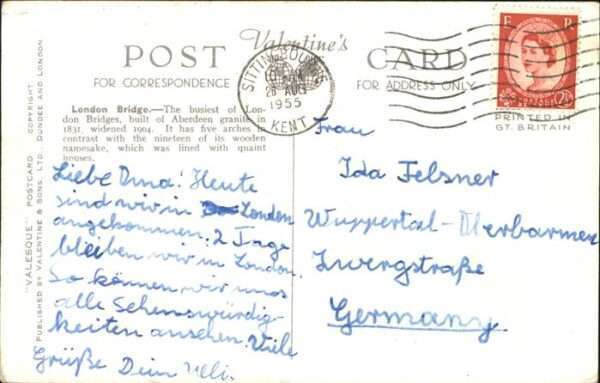 Valentine's
POST CARD
FOR CORRESPONDENCE
FOR ADDRESS ONLY
PRINTED IN
GT. BRITAIN
SITTINGBOURNE
26 AUG
1955
KENT
E R
POSTAGE
2½
London Bridge.—The busiest of Lon-
don Bridges, built of Aberdeen granite in
1831, widened 1904. It has five arches in
contrast with the nineteen of its wooden
namesake, which was lined with quaint
houses.
Liebe Oma! Heute
sind wir in London
angekommen. 2 Tage
bleiben wir in London.
So können wir uns
alle Sehenswürdig-
keiten ansehen. Viele
Grüße Dein Uli.
Frau
Ida Felsner
Wuppertal-Oberbarmen
Zwergstraße
Germany
"VALESQUE" POSTCARD COPYRIGHT
PUBLISHED BY VALENTINE & SONS, LTD. DUNDEE AND LONDON.